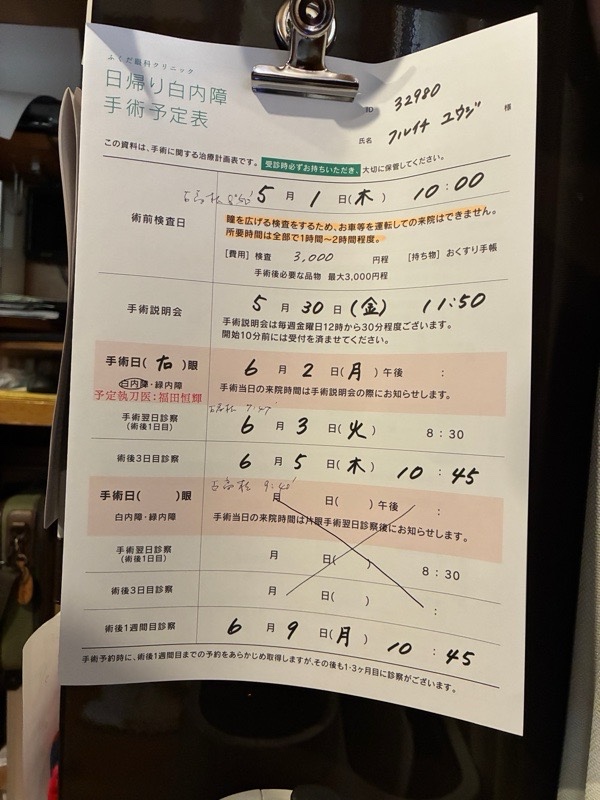 ふくだ眼科クリニック
日帰り白内障
手術予定表
ID 32980
氏名 フルイチ ユウジ 様
この資料は、手術に関する治療計画表です。受診時必ずお持ちいただき、大切に保管してください。
術前検査日 5月1日(木) 10:00
瞳を広げる検査をするため、お車等を運転しての来院はできません。
所要時間は全部で1時間〜2時間程度。
[費用] 検査 3,000 円程 [持ち物] おくすり手帳
手術後必要な品物 最大3,000円程
手術説明会 5月30日(金) 11:50
手術説明会は毎週金曜日12時から30分程度ございます。
開始10分前には受付を済ませてください。
手術日(右)眼 6月2日(月)午後 :
白内障・緑内障 手術当日の来院時間は手術説明会の際にお知らせします。
予定執刀医:福田恒輝
手術翌日診察 6月3日(火) 8:30
(術後1日目)
術後3日目診察 6月5日(木) 10:45
9:40
手術日( )眼 月 日( )午後 :
白内障・緑内障 手術当日の来院時間は片眼手術翌日診察後にお知らせします。
手術翌日診察 月 日( ) 8:30
(術後1日目)
術後3日目診察 月 日( ) :
術後1週間目診察 6月9日(月) 10:45
手術予約時に、術後1週間目までの予約をあらかじめ取得しますが、その後も1・3ヶ月目に診察がございます。